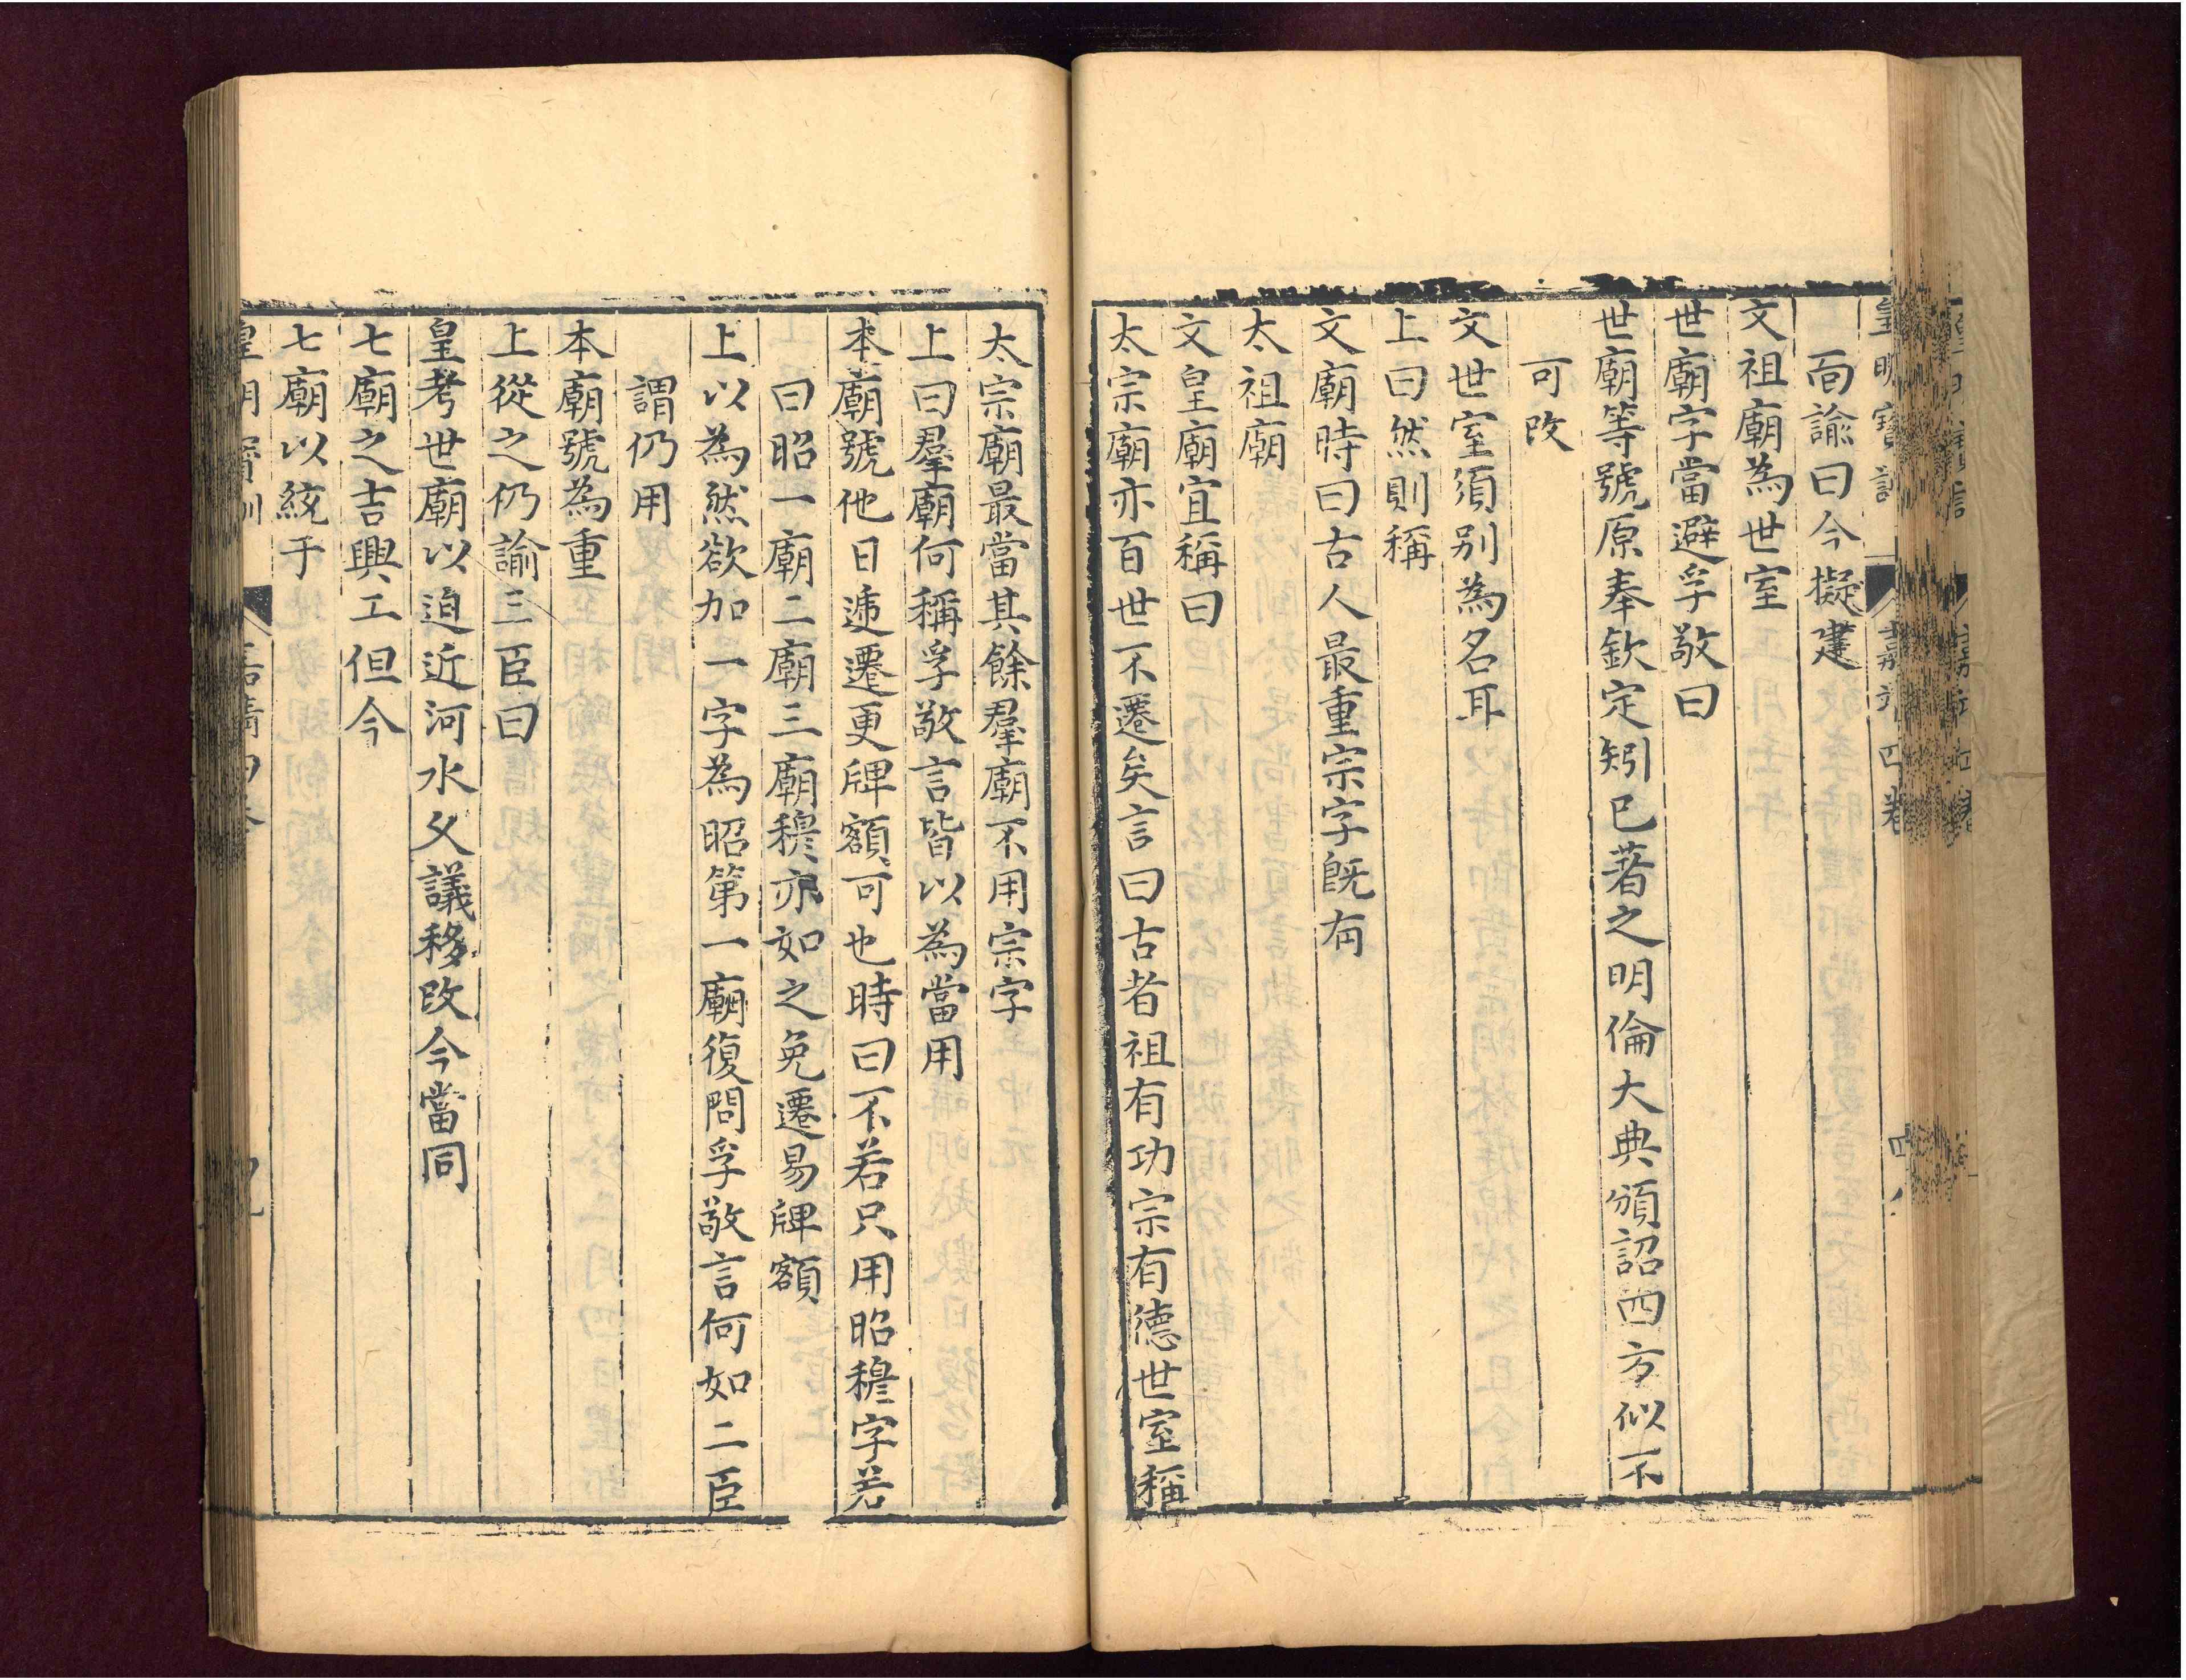 皇明寶訓 嘉靖四卷
面諭曰今擬建
文祖廟為世室
世廟字當避孚敬曰
世廟等號原奉欽定矧已著之明倫大典頒詔四方似不
可改
文世室須別為名耳
上曰然則稱
文廟時曰古人最重宗字既有
太祖廟
文皇廟宜稱曰
太宗廟亦百世不遷矣言曰古者祖有功宗有德世室稱
太宗廟最當其餘羣廟不用宗字
上曰羣廟何稱孚敬言皆以為當用
本廟號他日遞遷更牌額可也時曰不若只用昭穆字若
曰昭一廟二廟三廟穆亦如之免遷易牌額
上以為然欲加一字為昭第一廟復問孚敬言何如二臣
謂仍用
本廟號為重
上從之仍諭三臣曰
皇考世廟以迫近河水父議移改今當同
七廟之吉興工但今
七廟以統于
皇明寶訓 嘉靖四卷